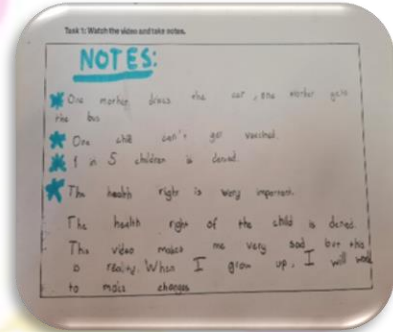 Task 1: Watch the video and take notes.
NOTES:
One mother drives the car, one mother gets
the bus
One chil can't get vaccined.
1 in 5 children is denied.
The health right is very important.
The health right of the child is denied.
This video makes me very sad but this
is reality. When I grow up, I will work
to make changes